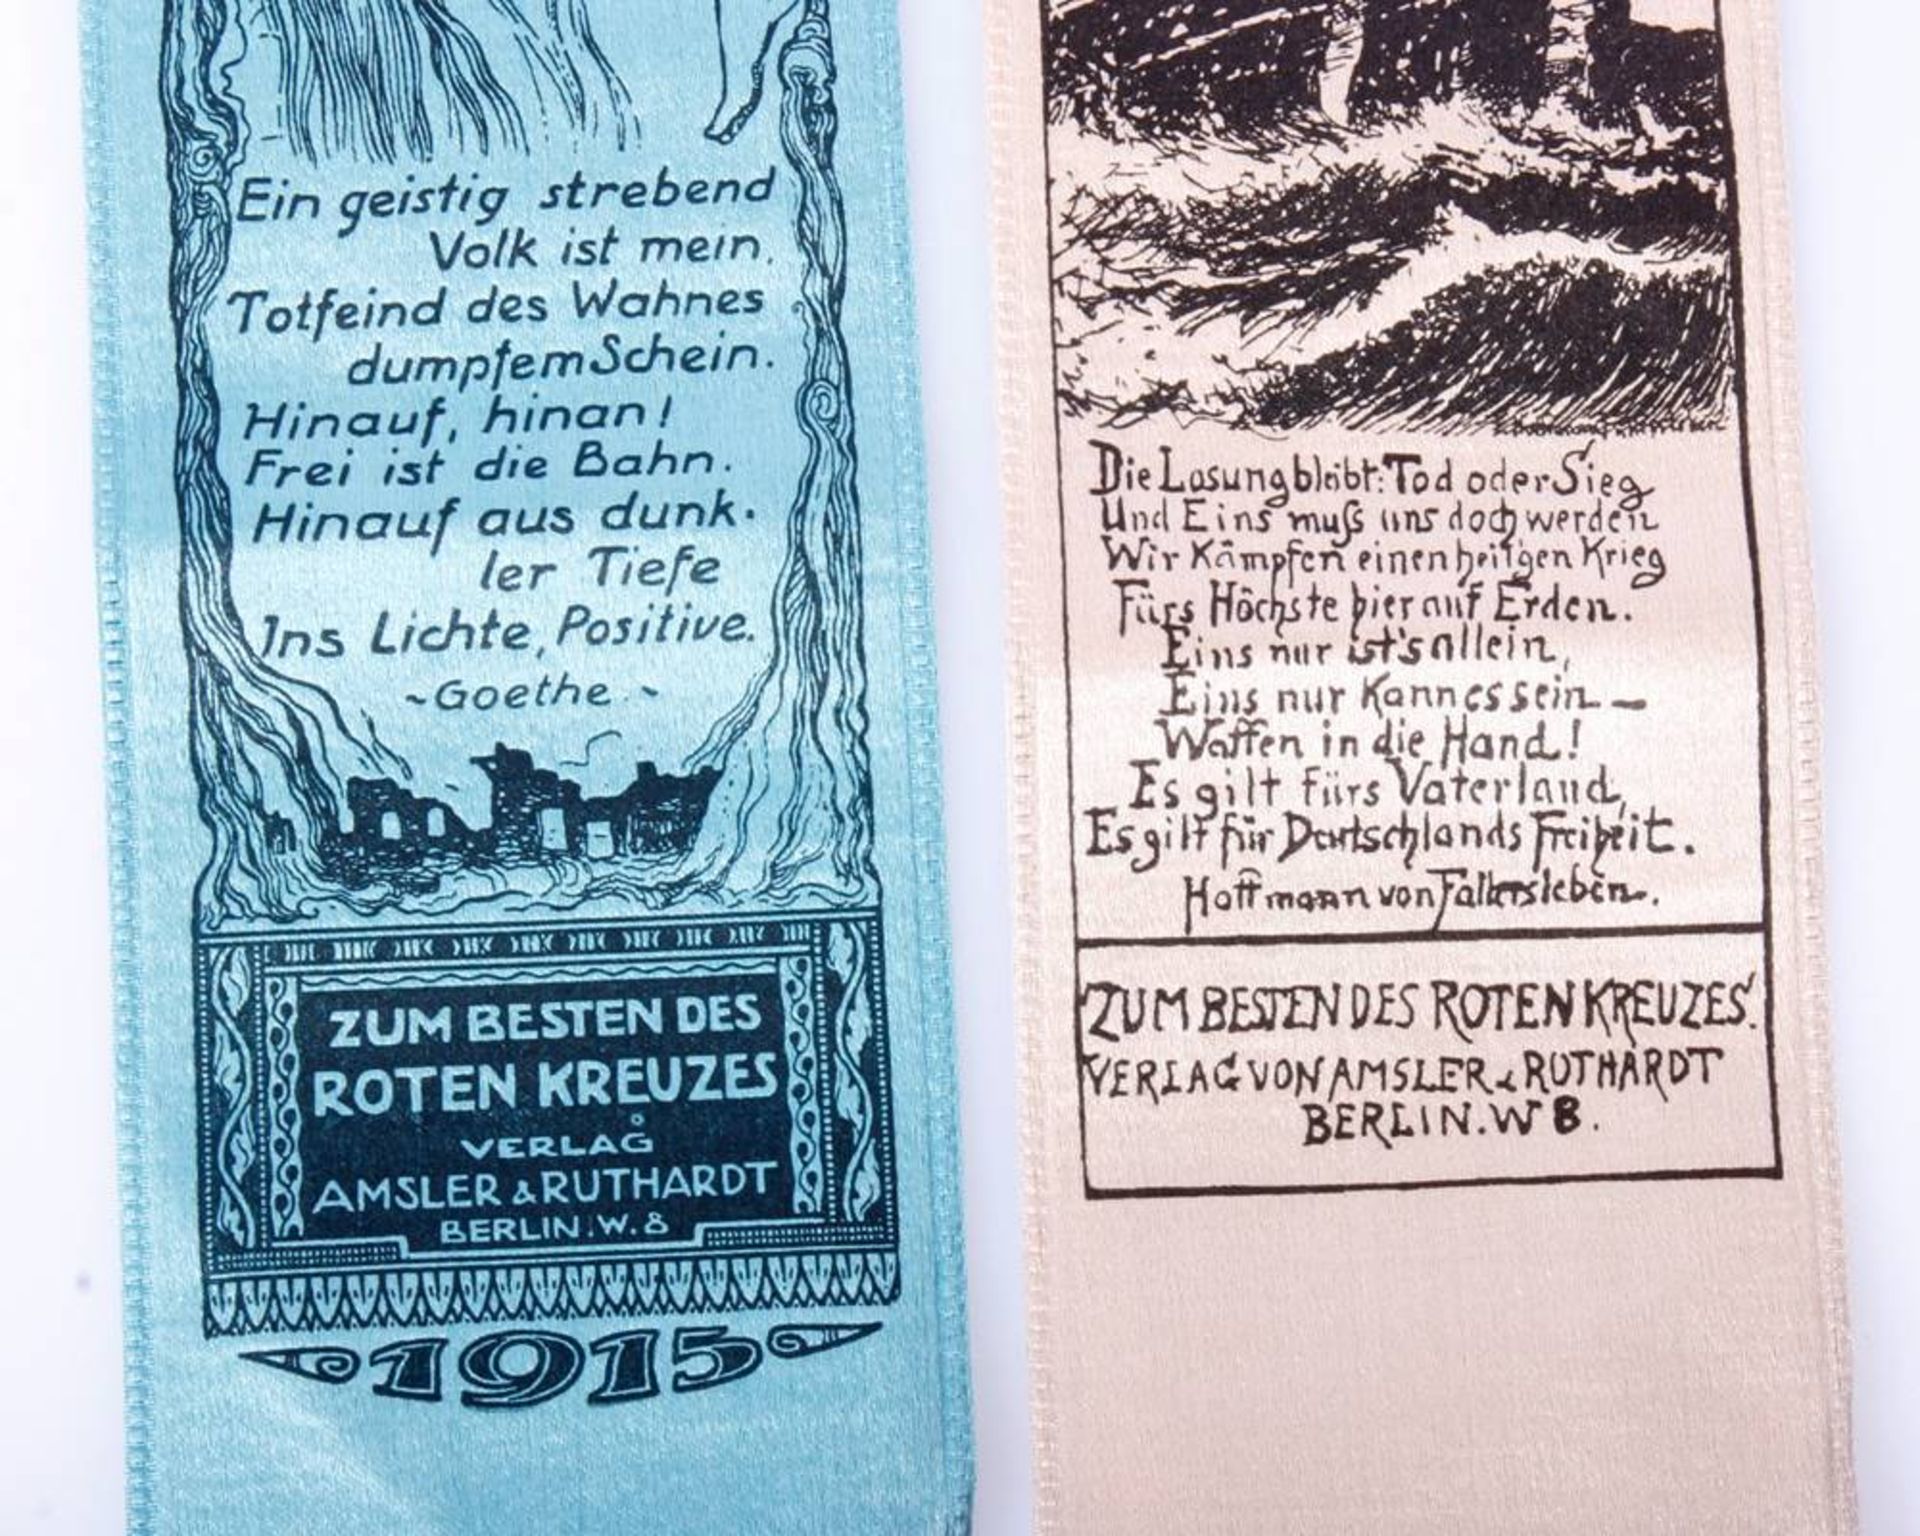 Ein geistig strebend
Volk ist mein.
Totfeind des Wahnes
dumpfem Schein.
Hinauf, hinan!
Frei ist die Bahn.
Hinauf aus dunk-
ler Tiefe
Ins Lichte, Positive.
~Goethe~
ZUM BESTEN DES
ROTEN KREUZES
VERLAG
AMSLER & RUTHARDT
BERLIN.W.8
1915
Die Losung bleibt: Tod oder Sieg
Und Eins muß uns doch werden
Wir Kämpfen einen heil'gen Krieg
Fürs Höchste hier auf Erden.
Eins nur ist's allein,
Eins nur Kann es sein —
Waffen in die Hand!
Es gilt fürs Vaterland,
Es gilt für Deutschlands Freiheit.
Hoffmann von Fallersleben.
ZUM BESTEN DES ROTEN KREUZES.
VERLAG VON AMSLER & RUTHARDT
BERLIN.W 8.